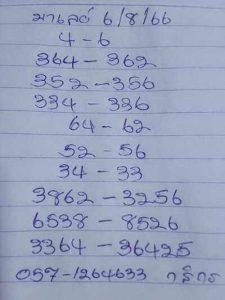 มาเลย์ 6/8/66
4-6
364-362
352-356
334-336
64-62
52-56
34-33
3862-3256
6538-8526
3364-36425
057-1264633